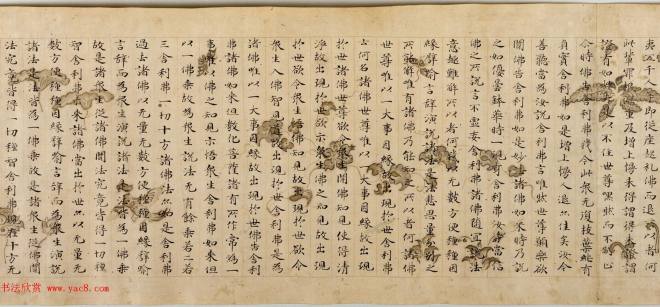 夷五千人等即從座起礼佛而退所以者何
此輩罪根深重及增上慢未得謂得未證謂
證有如此失是以不住世尊默然而不制止
尒時佛告舍利弗我今此衆无復枝葉純有
貞實舍利弗如是增上慢人退亦佳矣汝今
善聽當為汝說舍利弗言唯然世尊願樂欲
聞佛告舍利弗如是妙法諸佛如來時乃說
之如優曇鉢華時一現耳舍利弗汝等當信
佛之所說言不虛妄舍利弗諸佛隨宜說法
意趣難解所以者何我以无數方便種種因
緣譬喻言辭演說諸法是法非思量分別之
所能解唯有諸佛乃能知之所以者何諸佛
世尊唯以一大事因緣故出現於世舍利弗
云何名諸佛世尊唯以一大事因緣故出現
於世諸佛世尊欲令衆生開佛知見使得清
淨故出現於世欲示衆生佛之知見故出現
於世欲令衆生悟佛知見故出現於世欲令
衆生入佛知見道故出現於世舍利弗是為
諸佛唯以一大事因緣故出現於世佛告舍利
弗諸佛如來但教化菩薩諸有所作常為一
事唯以佛之知見示悟衆生舍利弗如來但
以一佛乘故為衆生說法无有餘乘若二若
三舍利弗一切十方諸佛法亦如是舍利弗
過去諸佛以无量无數方便種種因緣譬喻
言辭而為衆生演說諸法是法皆為一佛乘
故是諸衆生從諸佛聞法究竟皆得一切種
智舍利弗未來諸佛當出於世亦以无量无
數方便種種因緣譬喻言辭而為衆生演說
諸法是法皆為一佛乘故是諸衆生從佛聞
法究竟皆得一切種智舍利弗現在十方无
书法欣赏
www.yac8.com